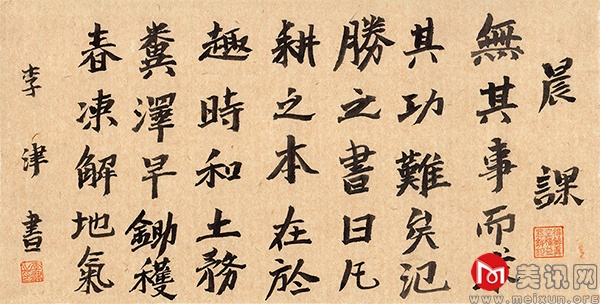 晨課
無其事而求
其功難矣氾
勝之書曰凡
耕之本在於
趣時和土務
糞澤早鋤穫
春凍解地氣
李津書
美讯网
www.meixun.org